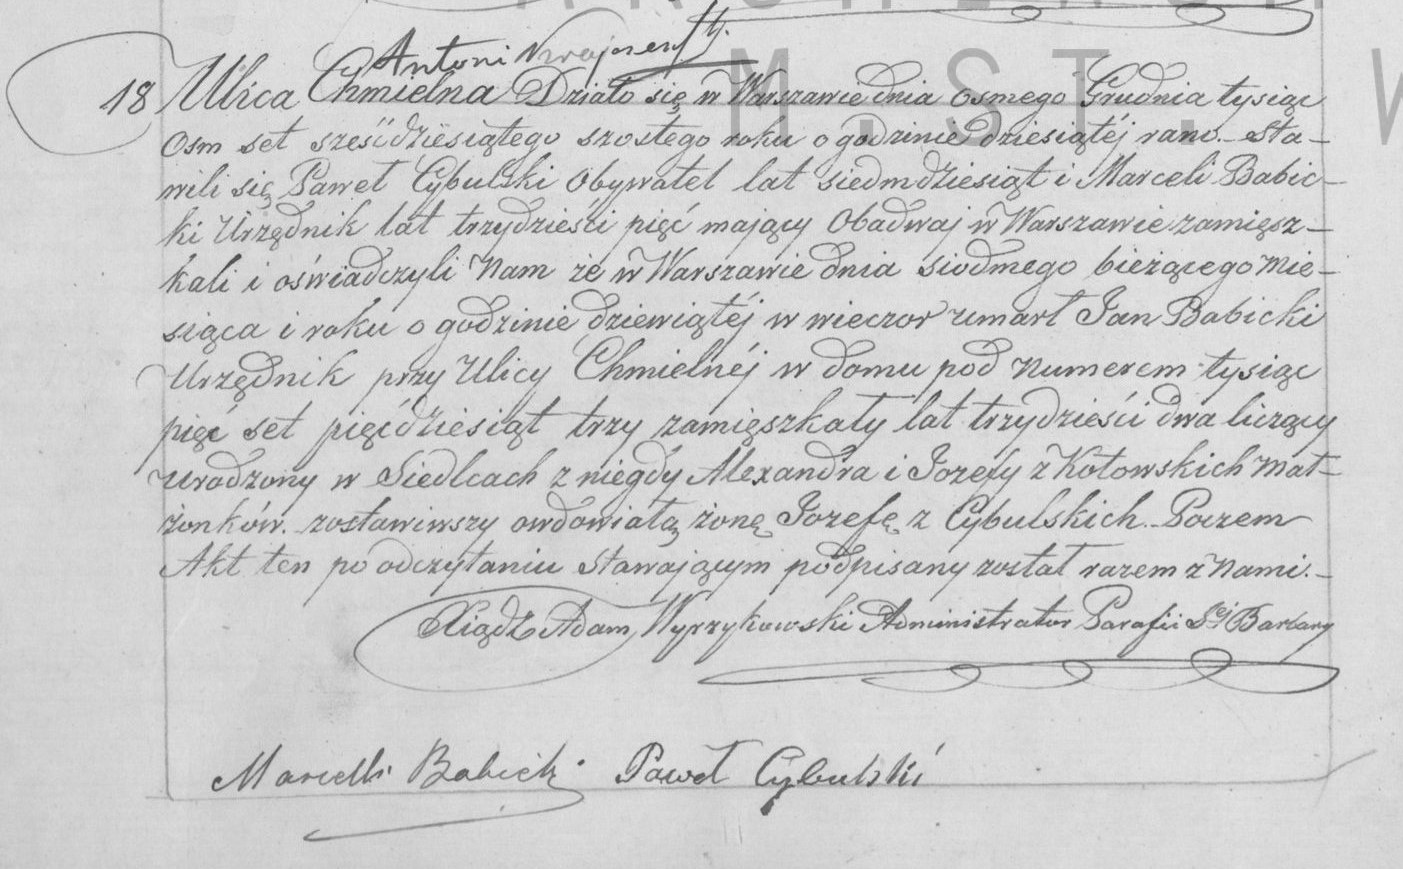 Antoni
18 Ulica Chmielna Działo się w Warszawie dnia osmego Grudnia tysiąc
osm set sześćdziesiątego szostego roku o godzinie dziesiątéj rano. Sta-
wili się Paweł Cybulski Obywatel lat siedmdziesiąt i Marceli Babic-
ki Urzędnik lat trzydzieści pięć mający Obadwaj w Warszawie zamięsz-
kali i oświadczyli Nam że w Warszawie dnia siodmego bieżącego mie-
siąca i roku o godzinie dziewiątéj w wieczor umarł Jan Babicki
Urzędnik przy Ulicy Chmielnéj w domu pod Numerem tysiąc
pięć set pięćdziesiąt trzy zamięszkały lat trzydzieści dwa liczący
urodzony w Siedlcach z niegdy Alexandra i Jozefy z Kotowskich mał-
żonków. zostawiwszy owdowiałą żonę Jozefę z Cybulskich. Poczem
Akt ten po odczytaniu Stawającym podpisany został razem z Nami.-
Xiądz Adam Wyrzykowski Administrator Parafii Sej Barbary
Marcelli Babicki Paweł Cybulski
M. ST. W